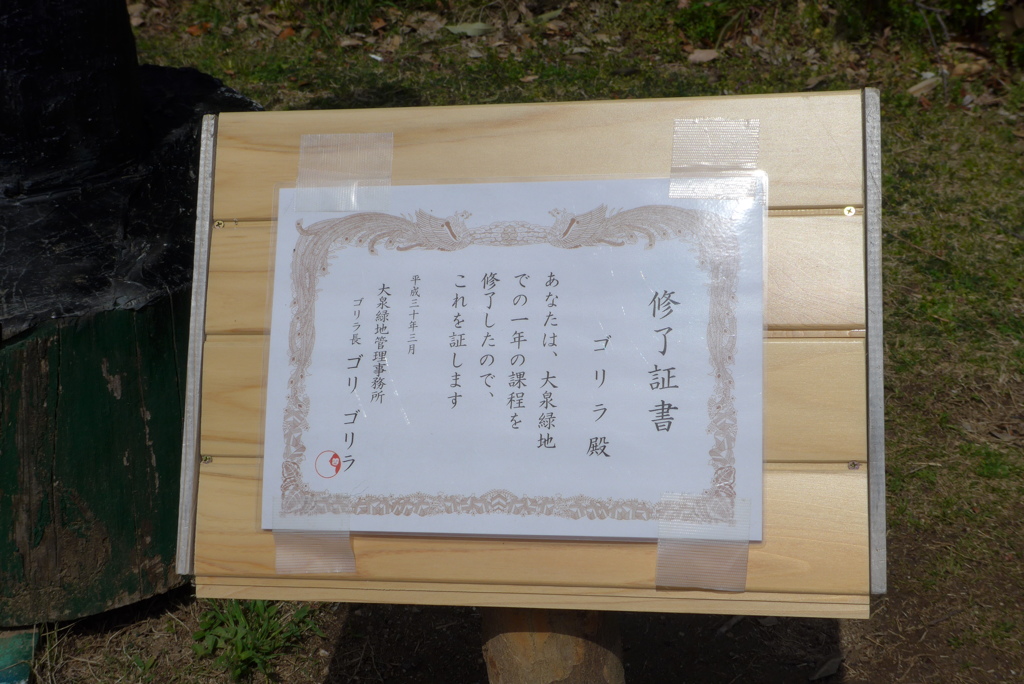 修了証書
ゴリラ殿
あなたは、大泉緑地
での一年の課程を
修了したので、
これを証します
平成三十年三月
大泉緑地管理事務所
ゴリラ長 ゴリ ゴリラ